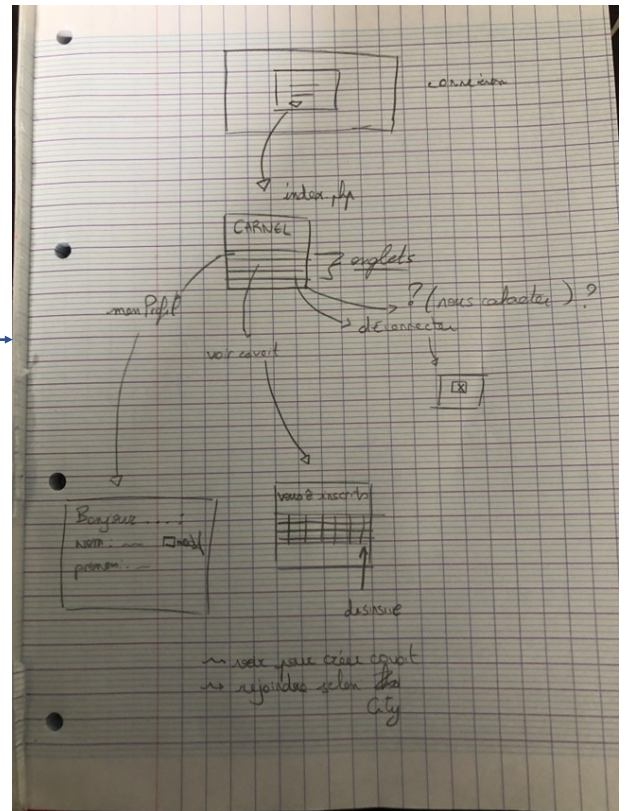 connexion
index.php
CARNEL
onglets
mon Profil
? (nous contacter) ?
déconnecter
voir covoit
Bonjour ... :
nom: __ modif
prénom: __
vous ê inscrits
désinscrire
→ voir pour créer covoit
→ rejoindre selon
City